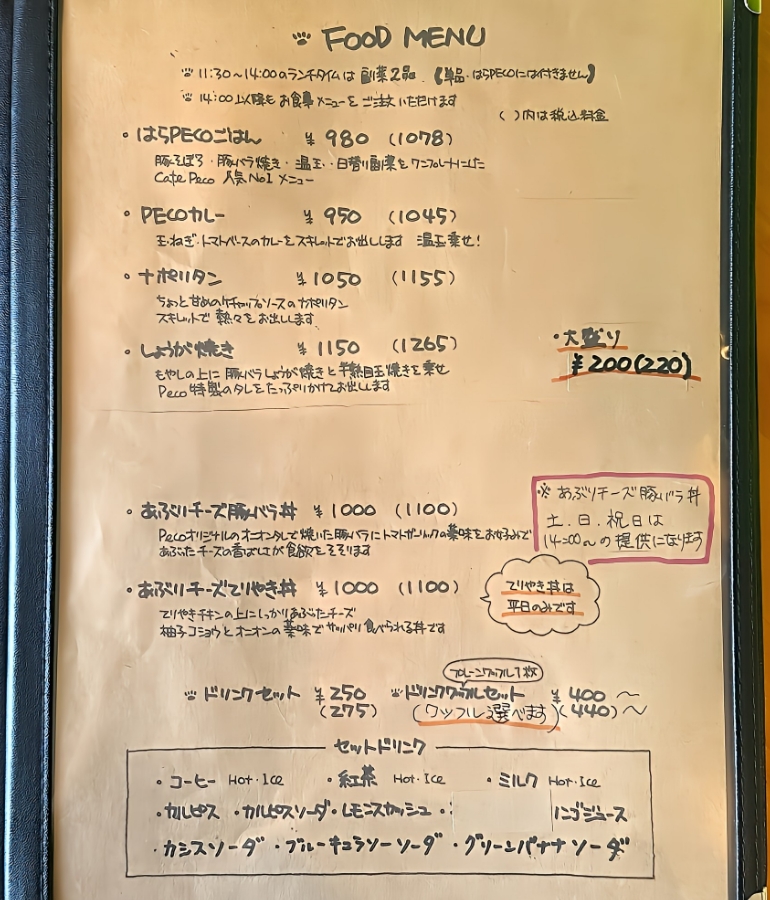 FOOD MENU
11:30〜14:00のランチタイムは 副菜2品.【単品・はらPECOには付きません】
14:00以降も お食事メニューをご注文いただけます
( )内は税込料金
・はらPECOごはん ¥980 (1078)
豚そぼろ・豚バラ焼き・温玉・日替り副菜をワンプレートにした
Cafe Peco 人気No1メニュー
・PECOカレー ¥950 (1045)
玉ねぎ・トマトベースのカレーをスキレットでお出しします 温玉乗せ!
・ナポリタン ¥1050 (1155)
ちょっと甘めのケチャップソースのナポリタン
スキレットで 熱々をお出しします
・しょうが焼き ¥1150 (1265)
もやしの上に豚バラしょうが焼きと半熟目玉焼きを乗せ
Peco特製のタレをたっぷりかけてお出しします
・大盛り
¥200(220)
・あぶりチーズ豚バラ丼 ¥1000 (1100)
Pecoオリジナルのオニオンタレで焼いた豚バラにトマトガーリックの薬味をお好みで
あぶったチーズの香ばしさが食欲をそそります
※あぶりチーズ豚バラ丼
土.日.祝日は
14:00〜の提供になります
・あぶりチーズてりやき丼 ¥1000 (1100)
てりやきチキンの上にしっかりあぶったチーズ
柚子コショウとオニオンの薬味でサッパリ食べられる丼です
てりやき丼は
平日のみです
プレーンワッフル1枚
ドリンクセット ¥250 ドリンクワッフルセット ¥400〜
(275) (ワッフル選べます) (440)〜
セットドリンク
・コーヒー Hot・Ice ・紅茶 Hot・Ice ・ミルク Hot・Ice
・カルピス ・カルピスソーダ・レモンスカッシュ・ リンゴジュース
・カシスソーダ ・ブルーキュラソーソーダ ・グリーンバナナソーダ